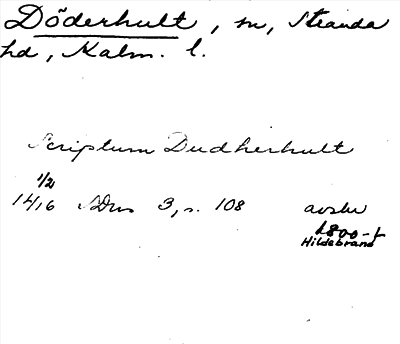 Döderhult, sn, Stranda
hd, Kalm. l.
Scriptum Dudherhult
1/2
1416 SDns 3, s. 108 avskr
1800-t
Hildebrand